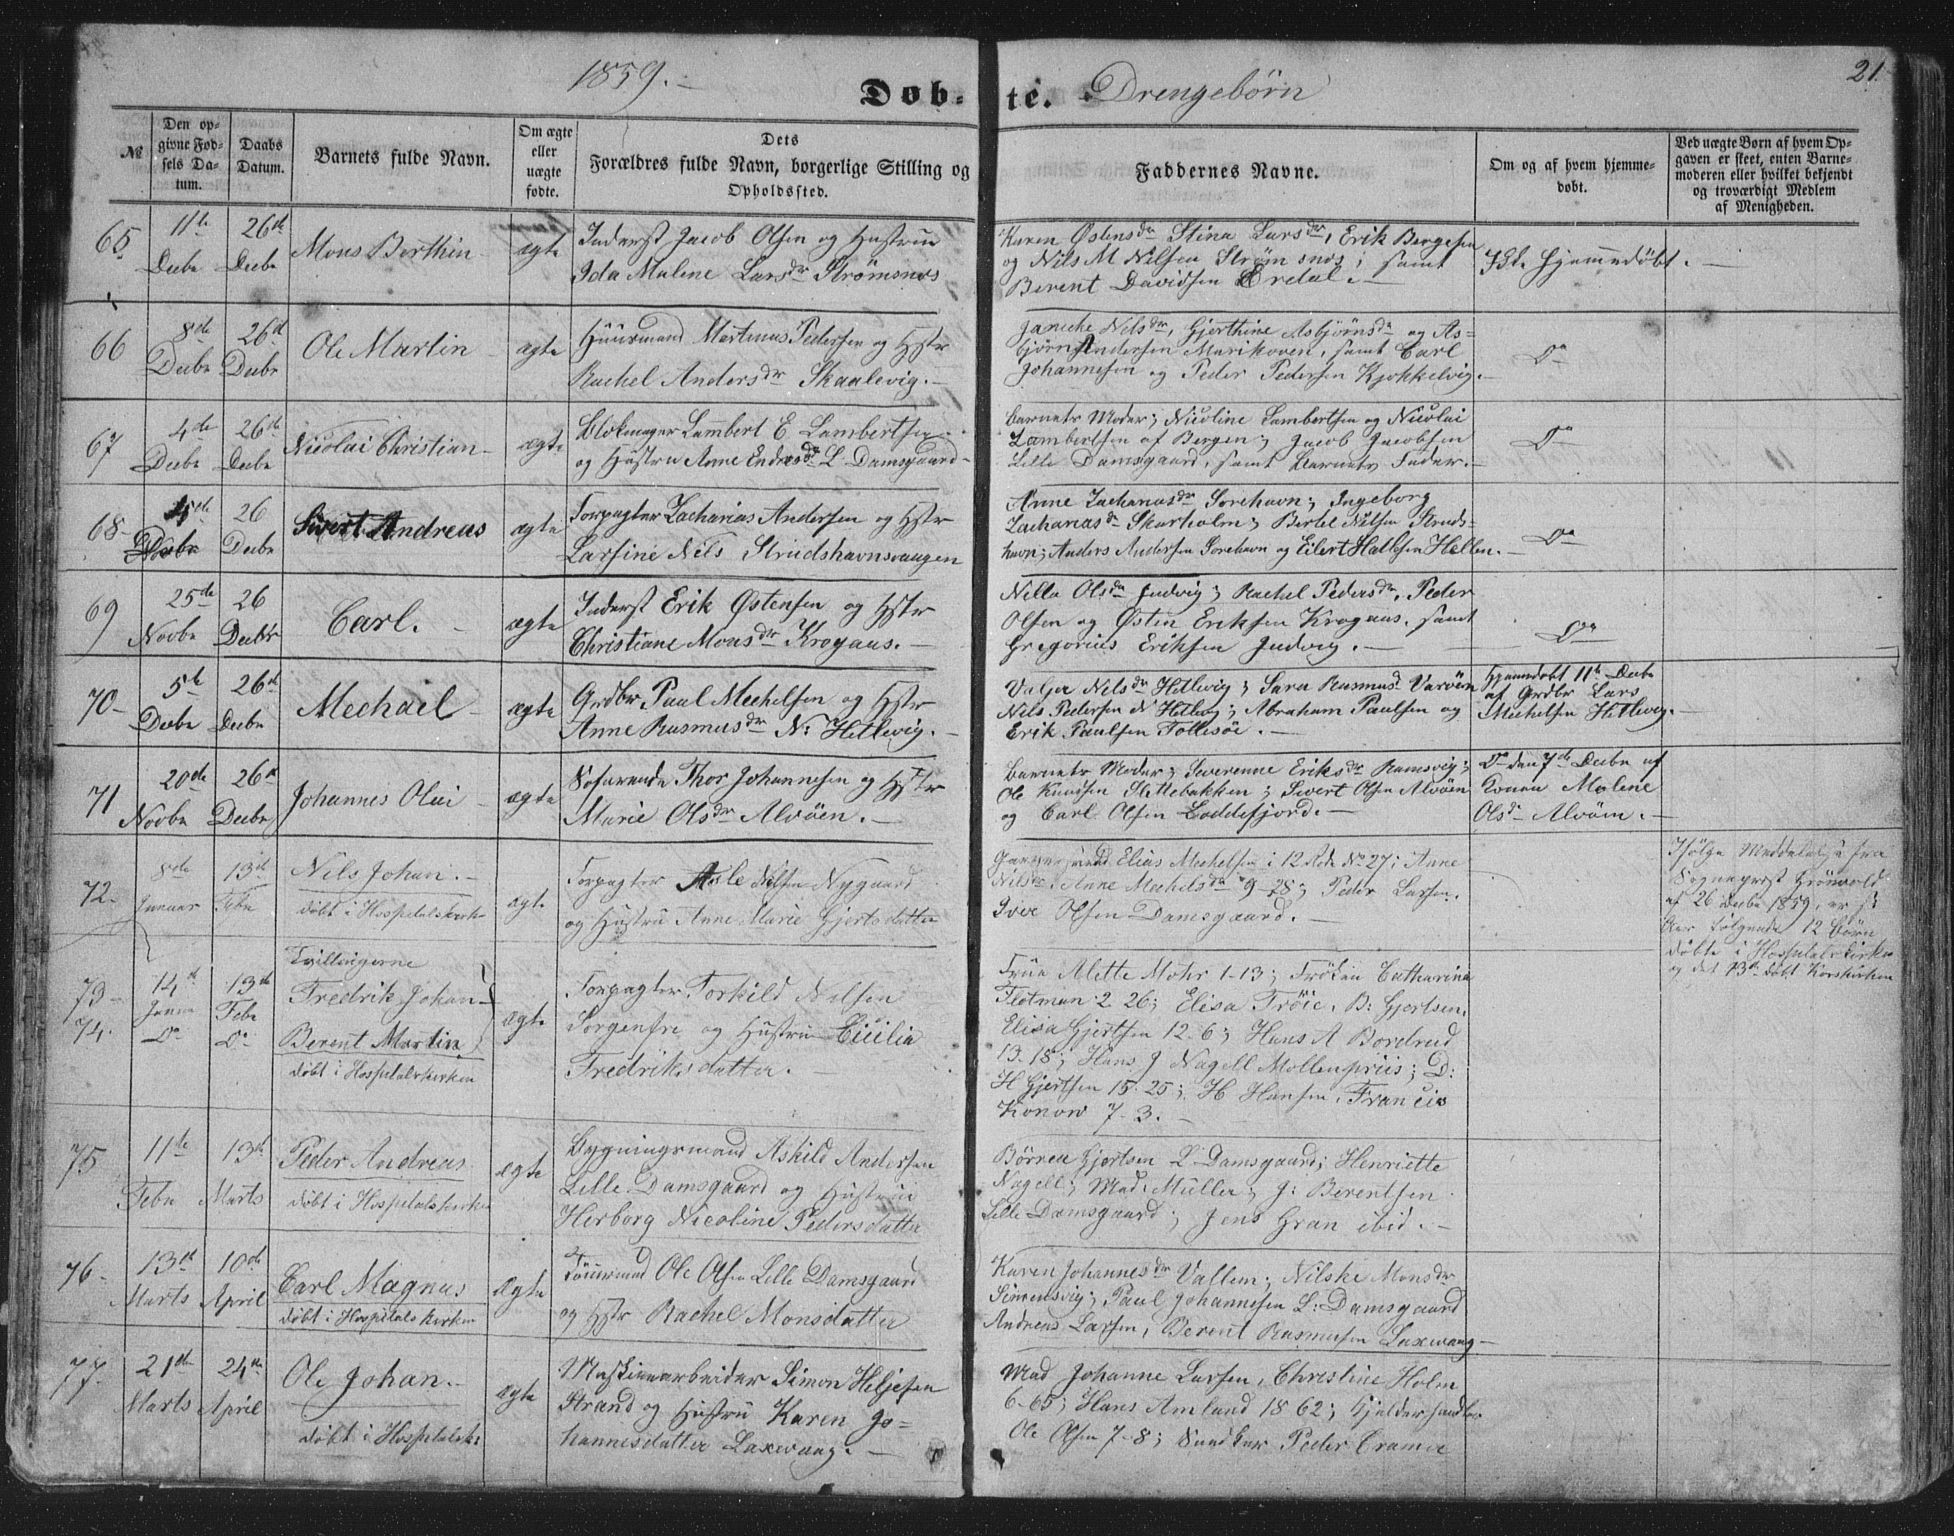 1859.-
Döb-te. Drengebörn
21.
№
Den op-
givne Fød-
sels Da-
tum.
Daabs
Datum.
Barnets fulde Navn.
Om ægte
eller
uægte
fødte.
Dets
Forældres fulde Navn, borgerlige Stilling og
Opholdssted.
Faddernes Navne.
Om og af hvem hjemme-
døbt.
Ved uægte Børn af hvem Op-
gaven er skeet, enten Barne-
moderen eller hvilket bekjendt
og troværdigt Medlem
af Menigheden.
65
11te
Decbr
26de
Decbr
Mons Berthin
ægte
Inderst Jacob Olsen og Hustrue
Ida Malene Larsdr Strömsnes
Karen Østensdr Stina Larsdr, Erik Bergesen
og Nils M Nilsen Strömsnes; samt
Berent Davidsen Eredal.-
Ikke hjemmedöbt.-
66
8de
Decbr
26de
Decbr
Ole Martin
ægte
Huusmand Martinus Pedersen og Hstr
Rachel Andersdr Skaalevig.-
Janicke Nilsdr, Gjerthine Asbjörnsdr og As-
björn Andersen Marikoven, samt Carl
Johannesen og Peder Pedersen Kjökkelvig.-
Do
67
4de
Decbr
26de
Decbr
Nicolai Christian-
ægte
Blokmager Lambert E Lambertsen
og Hustru Anne Endresdr L Damsgaard-
Barnets Moder; Nicoline Lambertsen og Nicolai
Lambertsen af Bergen; Jacob Jacobsen
Lille Damsgaard, samt Barnets Fader.-
Do
68-
26
Decbr
Sivert Andreas
ægte
Forpagter Zacharias Andersen og Hstr
Larsine Nils Strudshavnsvaagen
Anne Zachariasdr Sorehavn; Ingeborg
Zachariasdr Skarholm; Bertel Nilsen Struds-
havn; Anders Andersen Sorehavn og Eilert Hatlesen Hellen.-
Do
69
25de
Novbr
26
Decbr
Carl.-
ægte
Inderst Erik Østensen og Hstr
Christiane Monsdr Krogaas.-
Nille Olsdr Judvig; Rachel Pedersdr, Peder
Olsen og Østen Eriksen Krogaas, samt
Gregorius Eriksen Judvig.-
Do
70-
5te
Decbr
26de
Decbr
Mechael
ægte
Grdbr Paul Mechelsen og Hstr
Anne Rasmusdr N: Hetlevig.-
Valjer Nilsdr Hetlevig; Sara Rasmusd Varöen
Nils Pedersen N Hetlevig; Abraham Paulsen og
Erik Paulsen Follesöe.-
Hjemmedöbt 11te Decbr
af Grdbr Lars
Mechelsen Hetlevig.-
71
20de
Novbr
26de
Decbr
Johannes Olai-
ægte
Söfarende Thor Johannesen og Hstr
Marie Olsdr Alvöen.-
Barnets Moder; Severenne Eriksdr Ramsvig;
Ole Knudsen Slettebakken; Sivert Olsen Alvöen
og Carl Olsen Loddefjord.-
Do den 7de Decbr af
Konen Malene
Olsd Alvöen.-
72.
8de
Januar
13de
Febr
Nils Johan.-
döbt i Hospitalskirke
ægte
Forpagter Asle Nilsen Nygaard
og Hustru Anne Marie Gjertsdatter
Elias Mechelsen i 12 Rode No 27; Anne
Nilsdr, Anne Mechelsdr 9-28; Peder Larsen.
Iver Olsen Damsgaard.-
Ifølge Meddelelse fra
Sognepræst Grönvold
af 26 Decbr 1859, er
fölgende 12 Börn
döbte i Hospitalskirken
og det 13de döbt Korskirken
73-
74.
14de
Janua
Do
13de
Febr
Do
Tvillingerne
Fredrik Johan-
Berent Martin
döbt i Hospitalskirken
ægte
Forpagter Torkild Nilsen
Sorgenfre og Hustru Cicilia
Fredriksdatter.-
Frue Alette Mohr 1-13; Fröken Catharina
Flotman 2 26; Elisa Tröie, B: Gjertsen,
Elisa Gjertsen 12-6; Hans A Bordrud
13-18; Hans J Nagell Mollenpriis; D:
H Gjertsen 15-25; H Hansen, Francis
Konow 7-3.-
75
11te
Febr
13de
Marts
Peder Andreas
döbt i Hospitalskirke
ægte
Bygningsmand Askild Andersen
Lille Damsgaard og Hustrue
Herborg Nicoline Pedersdatter
Börre Gjertsen L Damsgaard; Henriette
Nagell; Mad. Müller; J: Berentsen
Lille Damsgaard; Jens Gran ibid.-
76-
13de
Marts
10de
April
Carl Magnus
döbt i Hospitalskirken
ægte
Ole Olsen Lille Damsgaard
og Hstr Rachel Monsdatter
Karen Johannesdr Vallem; Nilske Monsdr
Simensvig; Paul Johannesen L: Damsgaard
Andreas Larsen, Berent Rasmusen Laxevaag-
77.
21de
Marts
24de
April
Ole Johan.-
döbt i Hospitalski
ægte
Maskinarbeider Simon Heljesen
Strand og Hustru Karen Jo-
hannesdatter Laxevaag.-
Mad Johanne Larsen, Christine Holm
6-65; Hans Amlund 18 62; Gjelder
Ole Olsen 7-8; Peder Cramer